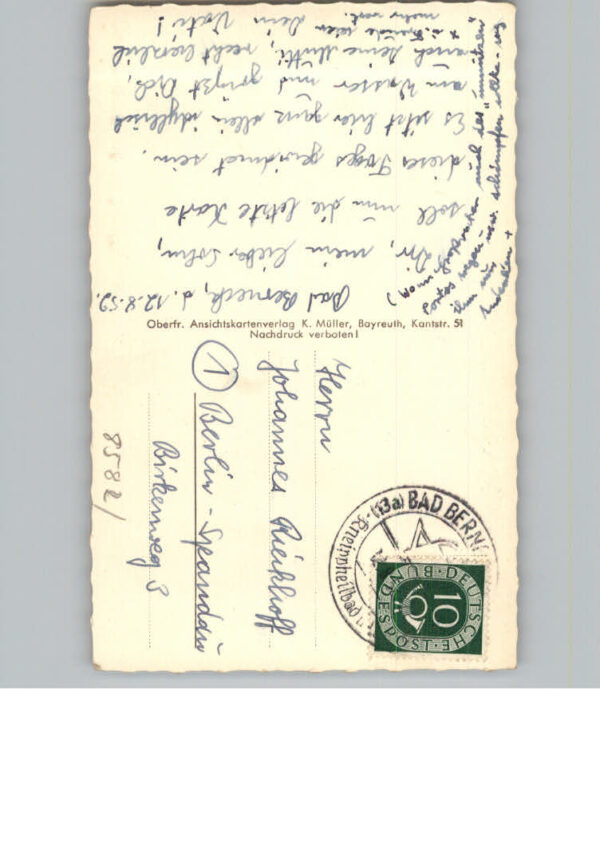 Bad Berneck, d. 12.8.52.
Dir, mein lieber Sohn,
soll nun die letzte Karte
dieses Tages gewidmet sein.
Es sitzt hier ganz allein idyllisch
am Wasser und grüßt Dich,
auch Deine Mutti, recht herzlich
Dein Vati!
mehr
Portos wegen
schimpfen
Oberfr. Ansichtskartenverlag K. Müller, Bayreuth, Kantstr. 51
Nachdruck verboten!
Herrn
Johannes Rieckhoff
1 Berlin-Spandau
Birkenweg
8582/
(13a) BAD BERN
Kneippheilbad
DEUTSCHE
BUNDESPOST
10